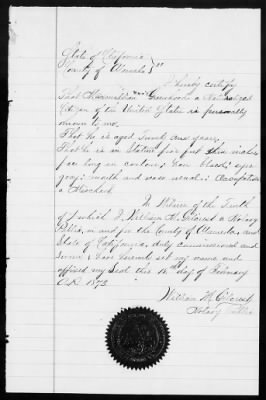 State of California
County of Alameda } ss
I hereby certify
that Maximilian Greenhood a Naturalized
Citizen of the United States is personally
known to me.
That he is aged Twenty one years.
That he is in Stature five feet inches
face long in contour; hair black; eyes
gray; mouth and nose usual; Occupation
a Merchant
In Witness of the Truth
of which I, William H. a Notary
Public, in and for the County of Alameda and
State of California, duly commissioned and
sworn, have hereunto set my name and
affixed my Seal this 12th day of February
A.D. 1873
William H.
Notary Public